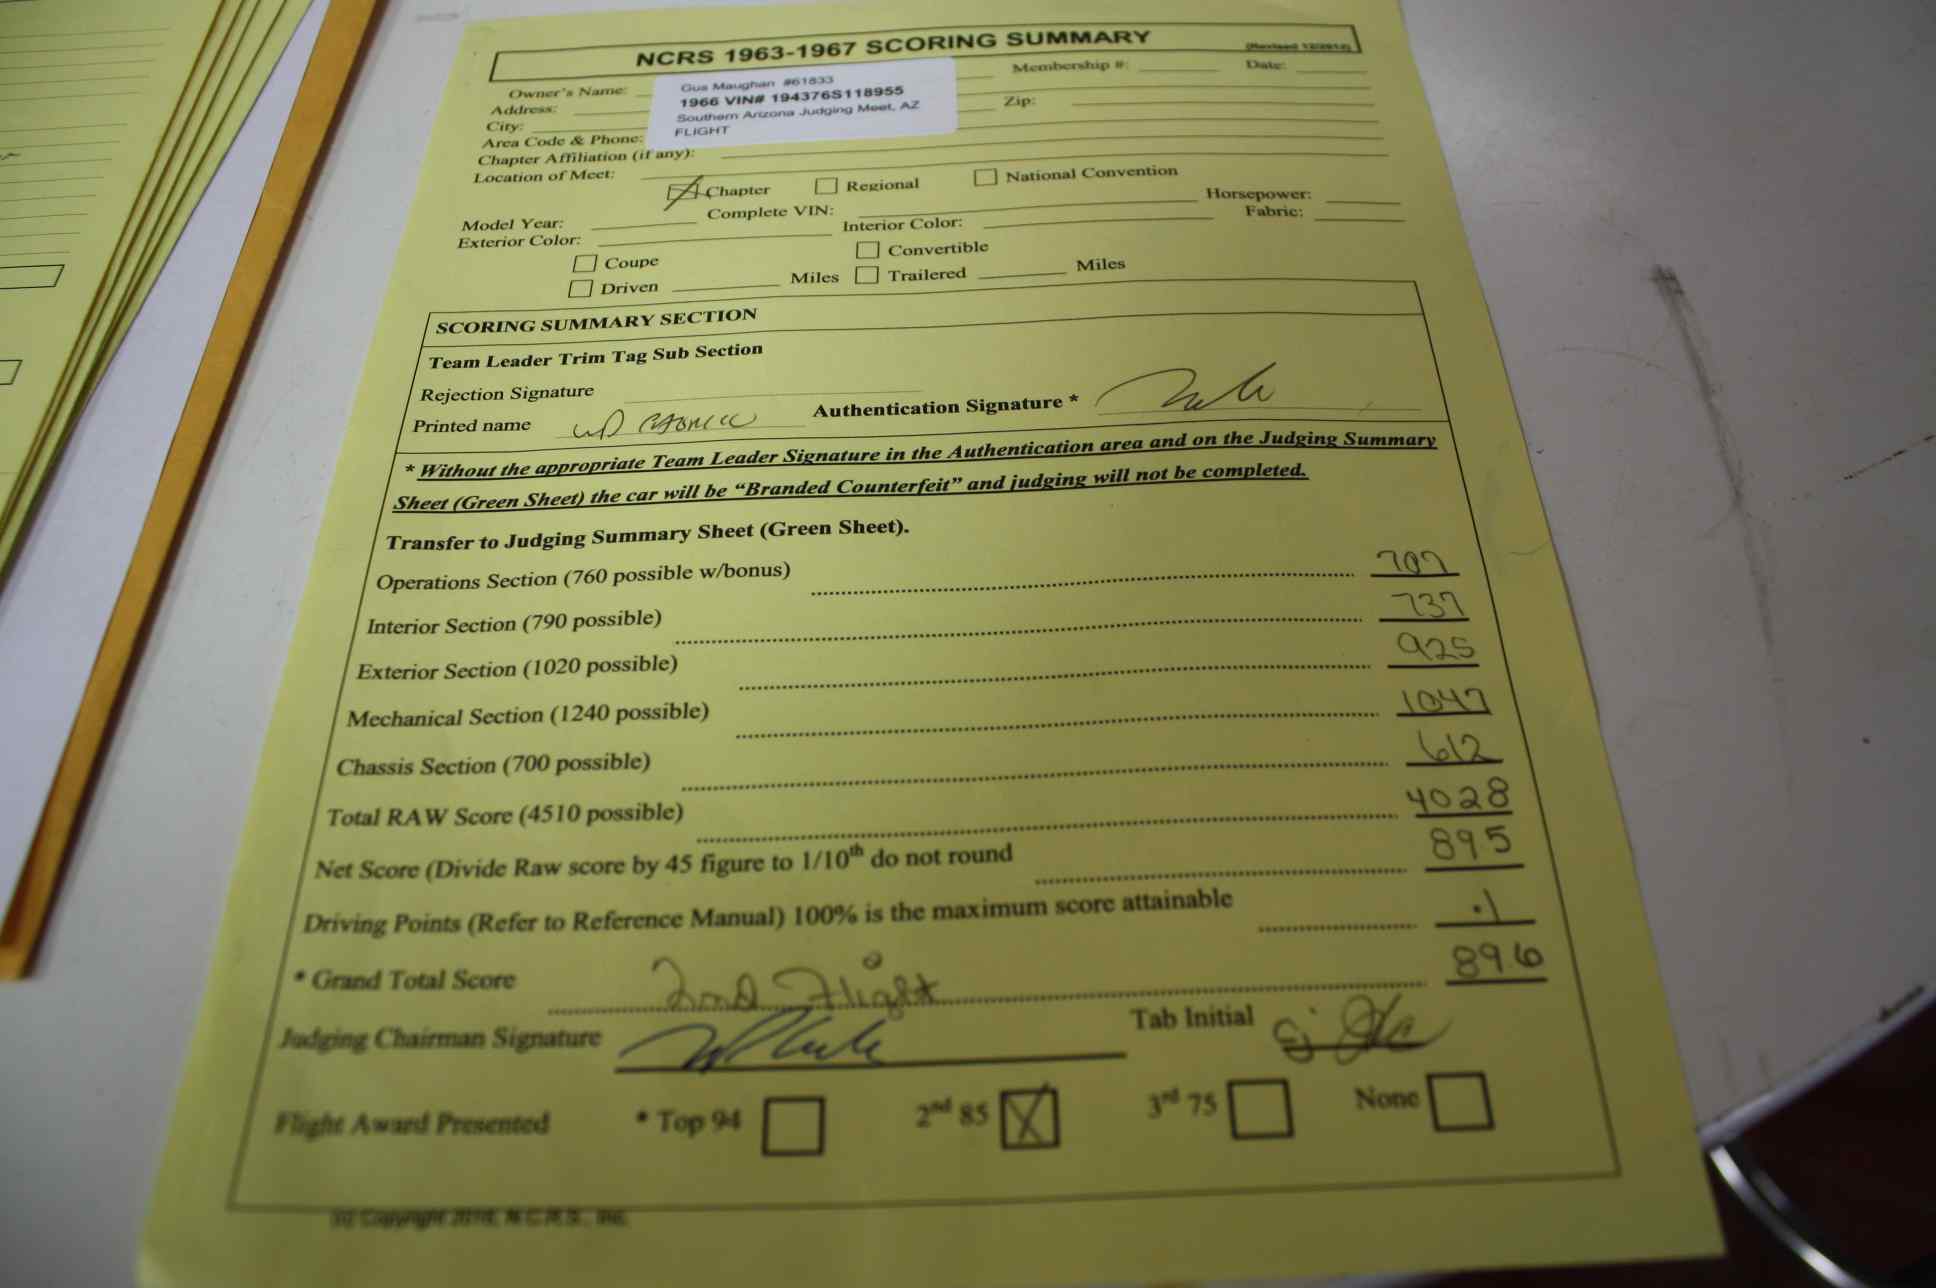 NCRS 1963-1967 SCORING SUMMARY (Revised 12/2012)
Owner's Name: Membership #: Date:
Gus Maughan #61833
1966 VIN# 194376S118955
Southern Arizona Judging Meet, AZ
FLIGHT
Address:
City: Zip:
Area Code & Phone:
Chapter Affiliation (if any):
Location of Meet:
Chapter Regional National Convention
Model Year: Complete VIN: Horsepower:
Exterior Color: Interior Color: Fabric:
Coupe Convertible
Driven Miles Trailered Miles
SCORING SUMMARY SECTION
Team Leader Trim Tag Sub Section
Rejection Signature
Printed name Authentication Signature *
* Without the appropriate Team Leader Signature in the Authentication area and on the Judging Summary
Sheet (Green Sheet) the car will be “Branded Counterfeit” and judging will not be completed.
Transfer to Judging Summary Sheet (Green Sheet).
Operations Section (760 possible w/bonus) 707
Interior Section (790 possible) 737
Exterior Section (1020 possible) 925
Mechanical Section (1240 possible) 1047
Chassis Section (700 possible) 612
Total RAW Score (4510 possible) 4028
Net Score (Divide Raw score by 45 figure to 1/10th do not round 895
Driving Points (Refer to Reference Manual) 100% is the maximum score attainable .1
* Grand Total Score 2nd Flight 896
Judging Chairman Signature Tab Initial
Flight Award Presented * Top 94 2nd 85 3rd 75 None
(c) Copyright 2010, N.C.R.S., Inc.